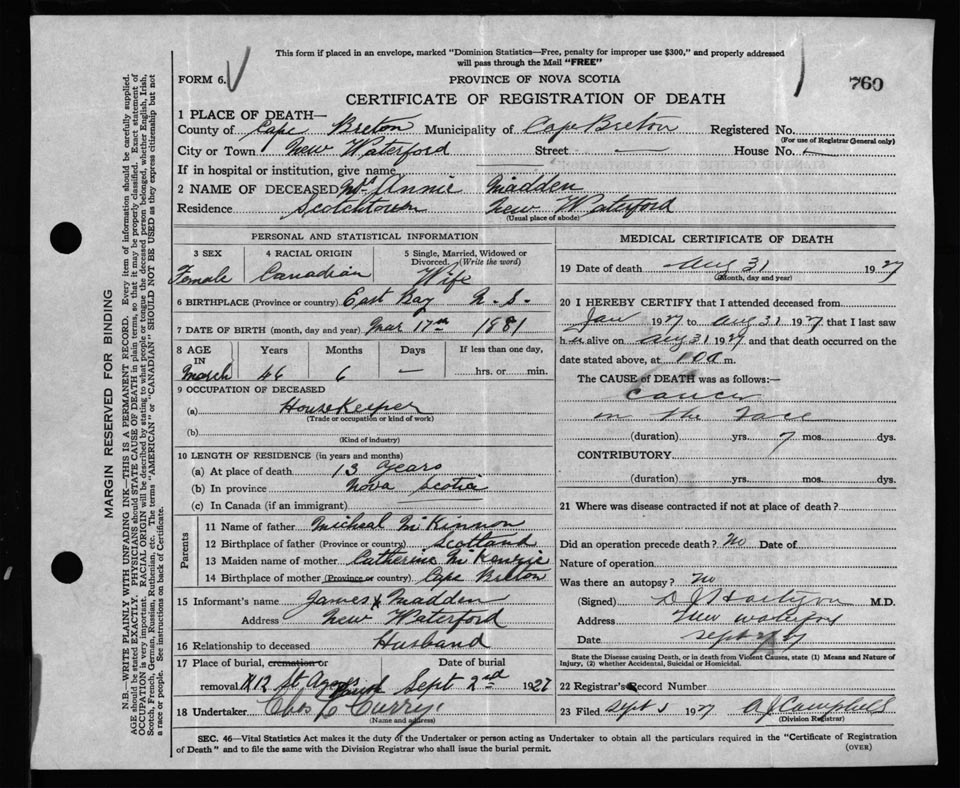 This form if placed in an envelope, marked "Dominion Statistics—Free, penalty for improper use $300," and properly addressed
will pass through the Mail "FREE"
FORM 6.
PROVINCE OF NOVA SCOTIA
760
CERTIFICATE OF REGISTRATION OF DEATH
1 PLACE OF DEATH—
County of Cape Breton Municipality of Cape Breton Registered No.
(For use of Registrar General only)
City or Town New Waterford Street — House No.
If in hospital or institution, give name
2 NAME OF DECEASED Mrs Annie Madden
Residence Scotchtown New Waterford
(Usual place of abode)
PERSONAL AND STATISTICAL INFORMATION
3 SEX 4 RACIAL ORIGIN 5 Single, Married, Widowed or
Divorced. (Write the word)
Female Canadian Wife
6 BIRTHPLACE (Province or country) East Bay N.S.
7 DATE OF BIRTH (month, day and year) Mar 17th 1881
8 AGE Years Months Days If less than one day,
IN
March 46 6 — hrs. or min.
9 OCCUPATION OF DECEASED
(a) HouseKeeper
(Trade or occupation or kind of work)
(b)
(Kind of industry)
10 LENGTH OF RESIDENCE (in years and months)
(a) At place of death 13 years
(b) In province Nova Scotia
(c) In Canada (if an immigrant)
Parents
11 Name of father Micheal McKinnon
12 Birthplace of father (Province or country) Scotland
13 Maiden name of mother Catherine McKenzie
14 Birthplace of mother (Province or country) Cape Breton
15 Informant's name James Madden
Address New Waterford
16 Relationship to deceased Husband
17 Place of burial, cremation or Date of burial
removal St. Agnes Sept 2nd 1927
18 Undertaker Chas Curry
(Name and address)
MEDICAL CERTIFICATE OF DEATH
19 Date of death Aug 31 1927
(Month, day and year)
20 I HEREBY CERTIFY that I attended deceased from
Jan 1927 to Aug 31 1927 that I last saw
her alive on Aug 31 1927 and that death occurred on the
date stated above, at m.
The CAUSE of DEATH was as follows:—
Cancer
on the Face
(duration) yrs. 7 mos. dys.
CONTRIBUTORY
(duration) yrs. mos. dys.
21 Where was disease contracted if not at place of death?
Did an operation precede death? No Date of
Nature of operation
Was there an autopsy? No
(Signed) M.D.
Address New Waterford
Date Sept
State the Disease causing Death, or in death from Violent Causes, state (1) Means and Nature of
Injury, (2) whether Accidental, Suicidal or Homicidal.
22 Registrar's Record Number
23 Filed Sept 5 1927 A J Campbell
(Division Registrar)
SEC. 46—Vital Statistics Act makes it the duty of the Undertaker or person acting as Undertaker to obtain all the particulars required in the "Certificate of Registration
of Death" and to file the same with the Division Registrar who shall issue the burial permit.
(OVER)
MARGIN RESERVED FOR BINDING
N.B.—WRITE PLAINLY WITH UNFADING INK—THIS IS A PERMANENT RECORD. Every item of information should be carefully supplied.
AGE should be stated EXACTLY. PHYSICIANS should STATE CAUSE OF DEATH in plain terms, so that it may be properly classified. Exact statement of
OCCUPATION is very important. RACIAL ORIGIN will be described by stating to what people or tongue the deceased person belonged, whether English, Irish,
Scotch, French, German, Russian, Ruthenian, etc. The terms "AMERICAN" or "CANADIAN" SHOULD NOT BE USED as they express citizenship but not
a race or people. See instructions on back of Certificate.